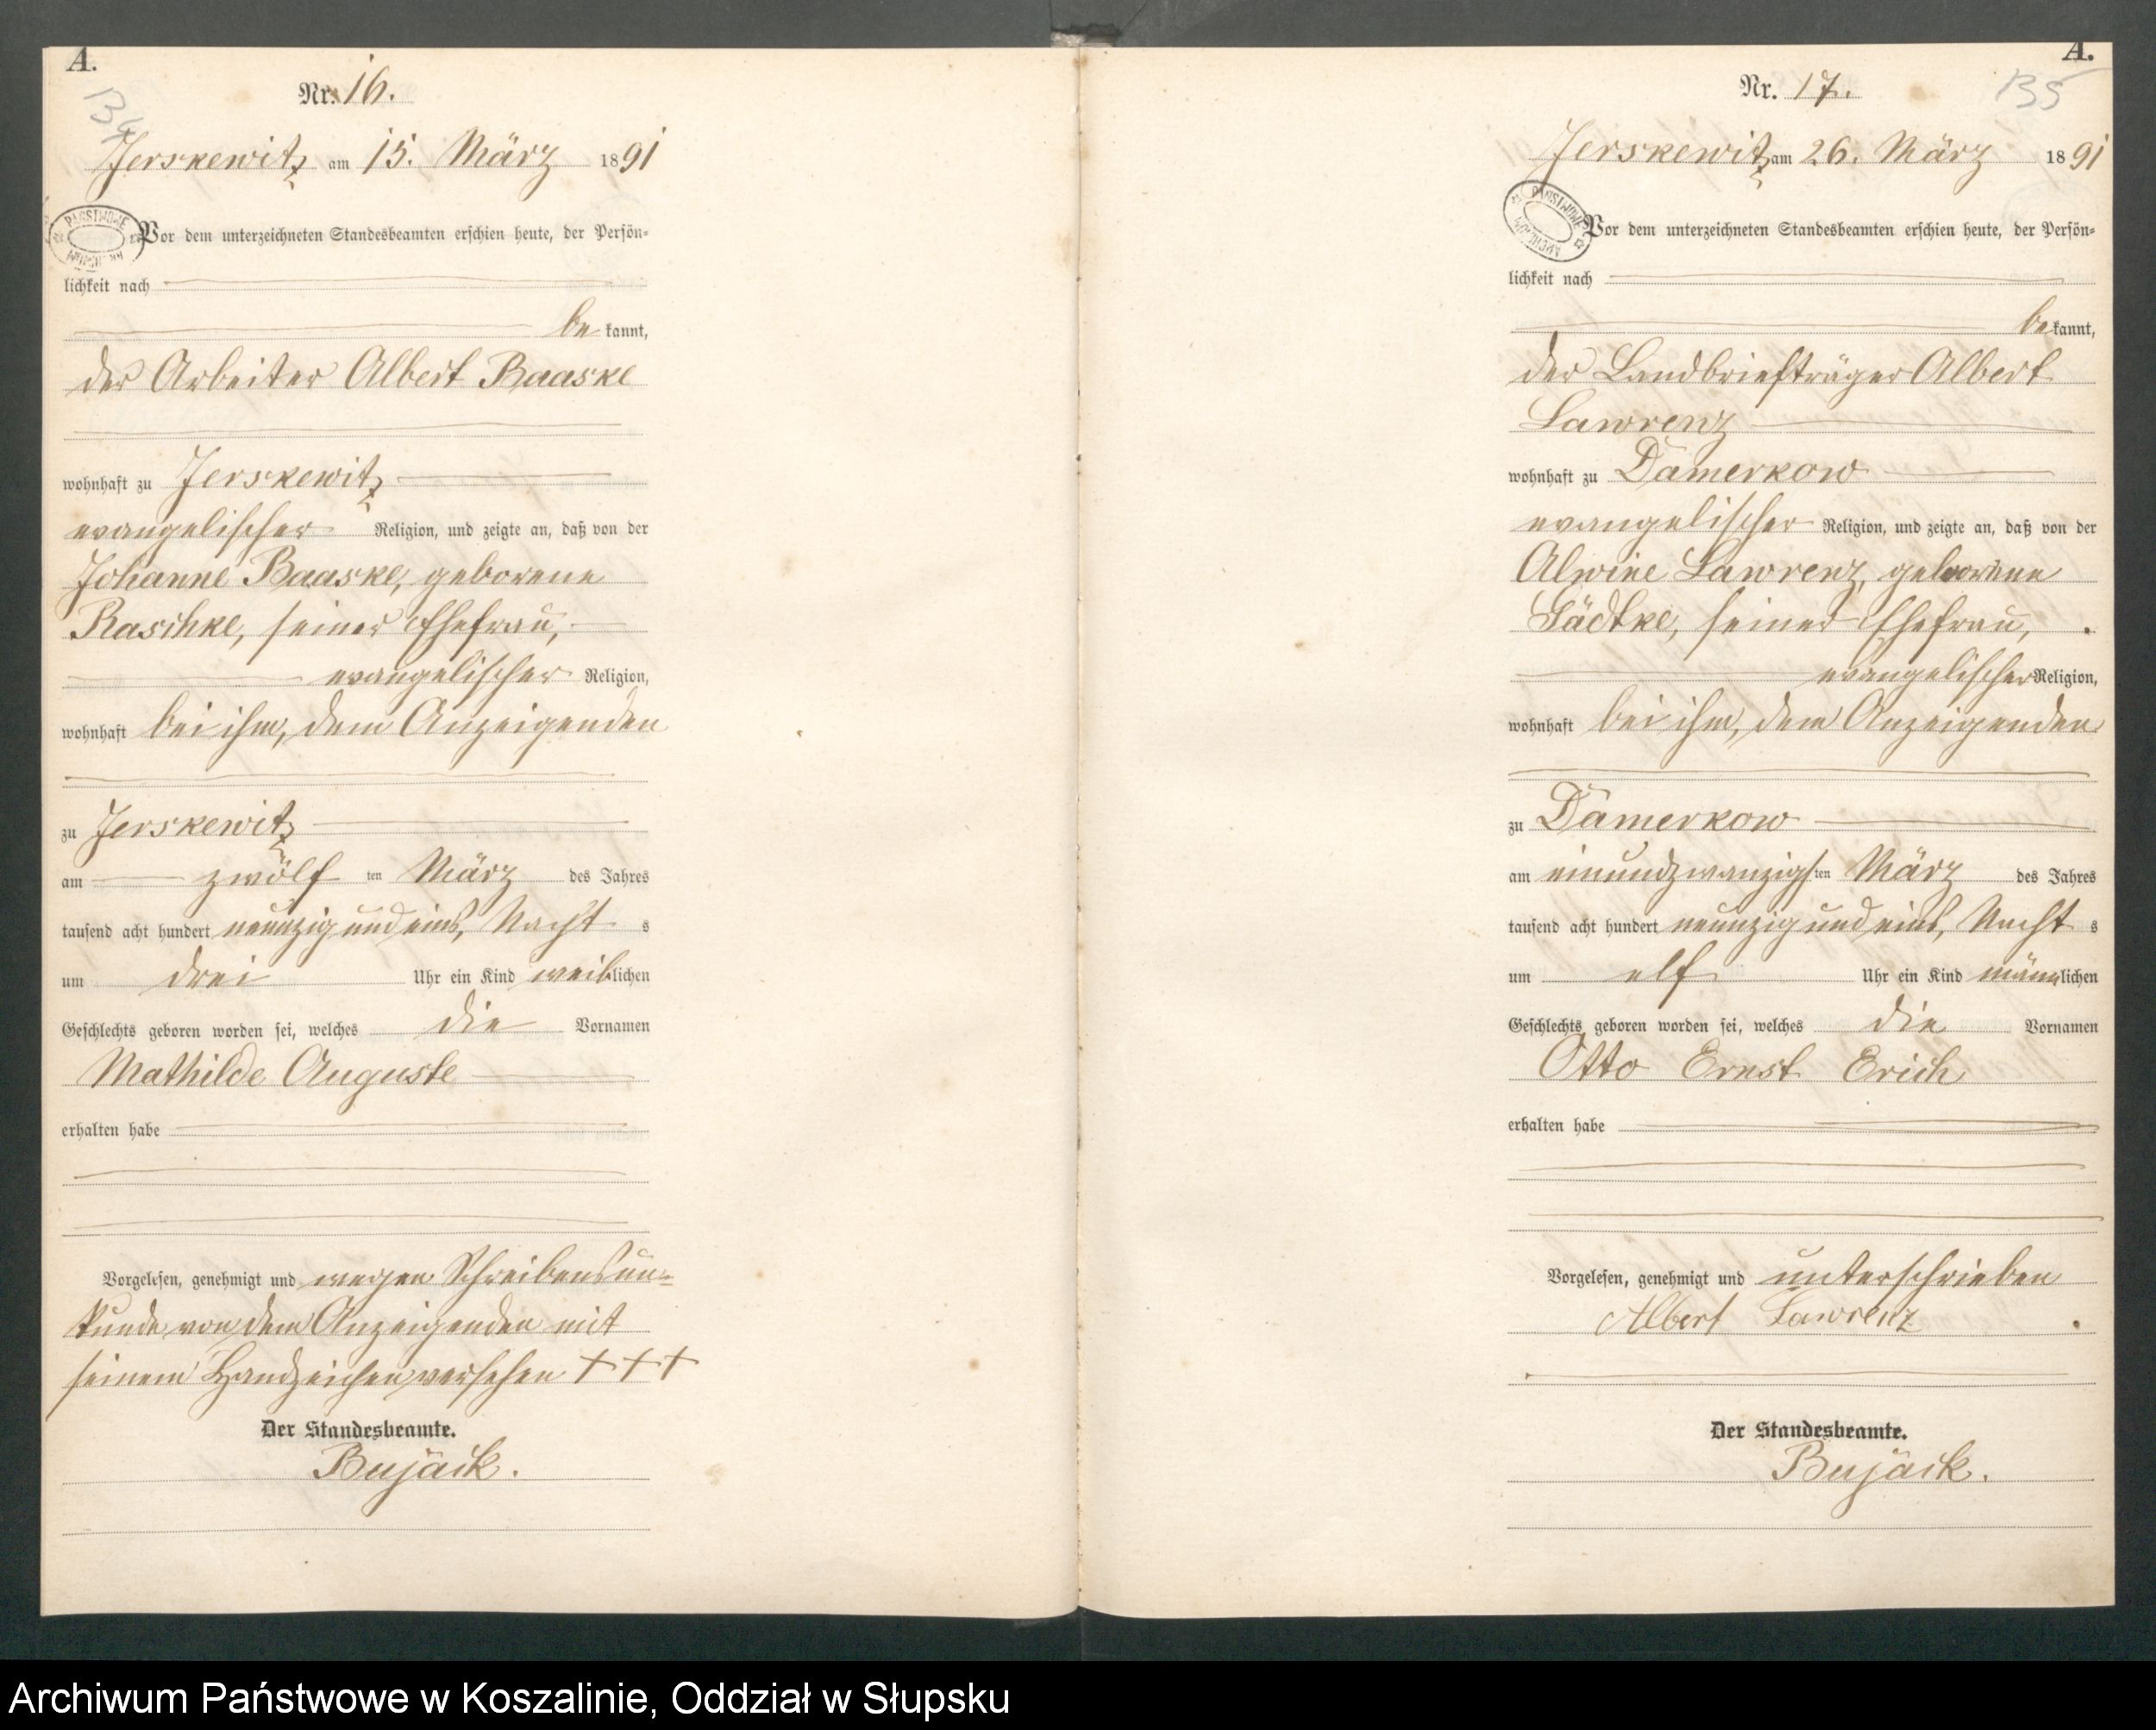 A.
Nr. 16.
134
Jerskewitz am 15. März 1891
PAŃSTWOWE
ARCHIWUM
Vor dem unterzeichneten Standesbeamten erschien heute, der Persön-
lichkeit nach
be kannt,
der Arbeiter Albert Baaske
wohnhaft zu Jerskewitz
evangelischer Religion, und zeigte an, daß von der
Johanne Baaske, geborene
Raschke, seiner Ehefrau,
evangelischer Religion,
wohnhaft bei ihm, dem Anzeigenden
zu Jerskewitz
am zwölf ten März des Jahres
tausend acht hundert neunzig und eins, Nacht s
um drei Uhr ein Kind weiblichen
Geschlechts geboren worden sei, welches die Vornamen
Mathilde Auguste
erhalten habe
Vorgelesen, genehmigt und wegen Schreibensun-
kunde von dem Anzeigenden mit
seinem Handzeichen versehen +++
Der Standesbeamte.
Bujack.
A.
Nr. 17.
135
Jerskewitz am 26. März 1891
PAŃSTWOWE
ARCHIWUM
Vor dem unterzeichneten Standesbeamten erschien heute, der Persön-
lichkeit nach
be kannt,
der Landbriefträger Albert
Lawrenz
wohnhaft zu Damerkow
evangelischer Religion, und zeigte an, daß von der
Alwine Lawrenz, geborene
Gädtke, seiner Ehefrau,
evangelischer Religion,
wohnhaft bei ihm, dem Anzeigenden
zu Damerkow
am einundzwanzigsten März des Jahres
tausend acht hundert neunzig und eins, Nacht s
um elf Uhr ein Kind männlichen
Geschlechts geboren worden sei, welches die Vornamen
Otto Ernst Erich
erhalten habe
Vorgelesen, genehmigt und unterschrieben
Albert Lawrenz
Der Standesbeamte.
Bujack.
Archiwum Państwowe w Koszalinie, Oddział w Słupsku